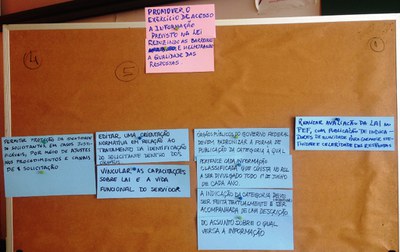 PROMOVER O
EXERCÍCIO DE ACESSO
A INFORMAÇÃO
PREVISTO NA LEI
REDUZINDO AS BARREIRAS
E MELHORANDO
A QUALIDADE DAS
RESPOSTAS
5
1
PERMITIR PROTEÇÃO DA IDENTIDADE
DE SOLICITANTES, EM CASOS JUSTI-
FICÁVEIS, POR MEIO DE AJUSTES
NOS PROCEDIMENTOS E CANAIS
DE SOLICITAÇÃO
EDITAR UMA ORIENTAÇÃO
NORMATIVA EM RELAÇÃO AO
TRATAMENTO DA IDENTIFICAÇÃO
DO SOLICITANTE DENTRO DOS
VINCULAR AS CAPACITAÇÕES
SOBRE LAI E A VIDA
FUNCIONAL DO SERVIDOR
ÓRGÃOS PÚBLICOS DO GOVERNO FEDERAL
DEVEM PADRONIZAR A FORMA DE
PUBLICAÇÃO DA CATEGORIA À QUAL
PERTENCE CADA INFORMAÇÃO
CLASSIFICADA QUE CONSTA NO ROL
A SER DIVULGADO TODO 1º DE JUNHO
DE CADA ANO.
A INDICAÇÃO DA CATEGORIA DEVE
SER FEITA TEXTUALMENTE E SER
ACOMPANHADA DE UMA DESCRIÇÃO
DO ASSUNTO SOBRE O QUAL
VERSA A INFORMAÇÃO
REALIZAR AVALIAÇÃO DA LAI NO
PEF, COM PUBLICAÇÃO DE INDICA-
DORES DE QUALIDADE